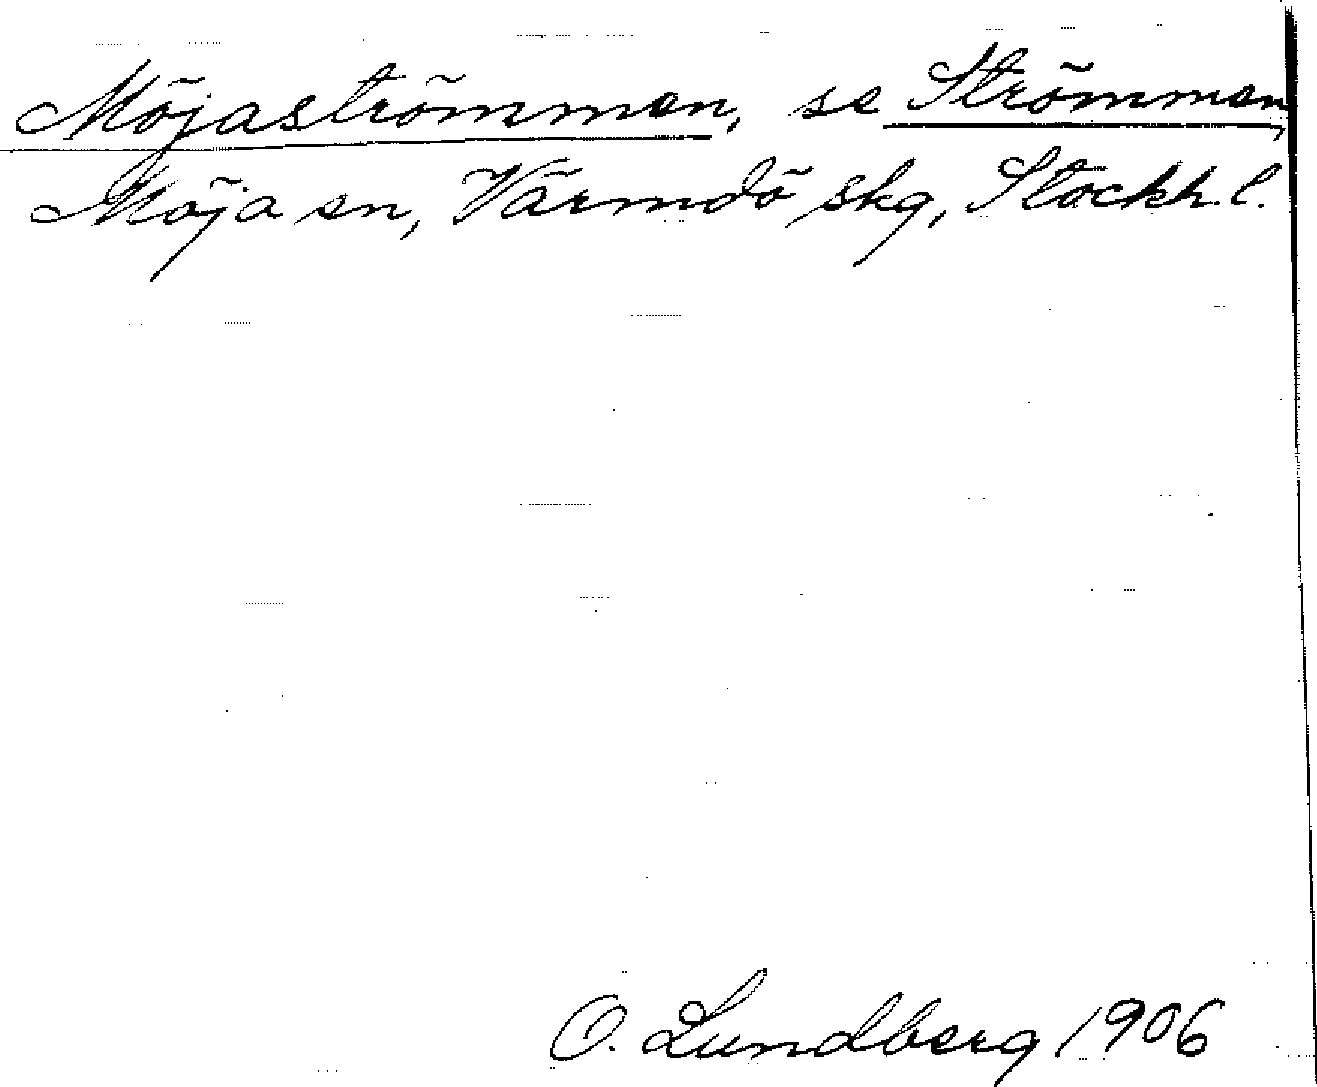 Möjaströmmen, se Strömmen,
Möja sn, Värmdö skg, Stockh. l.
O. Lundberg 1906